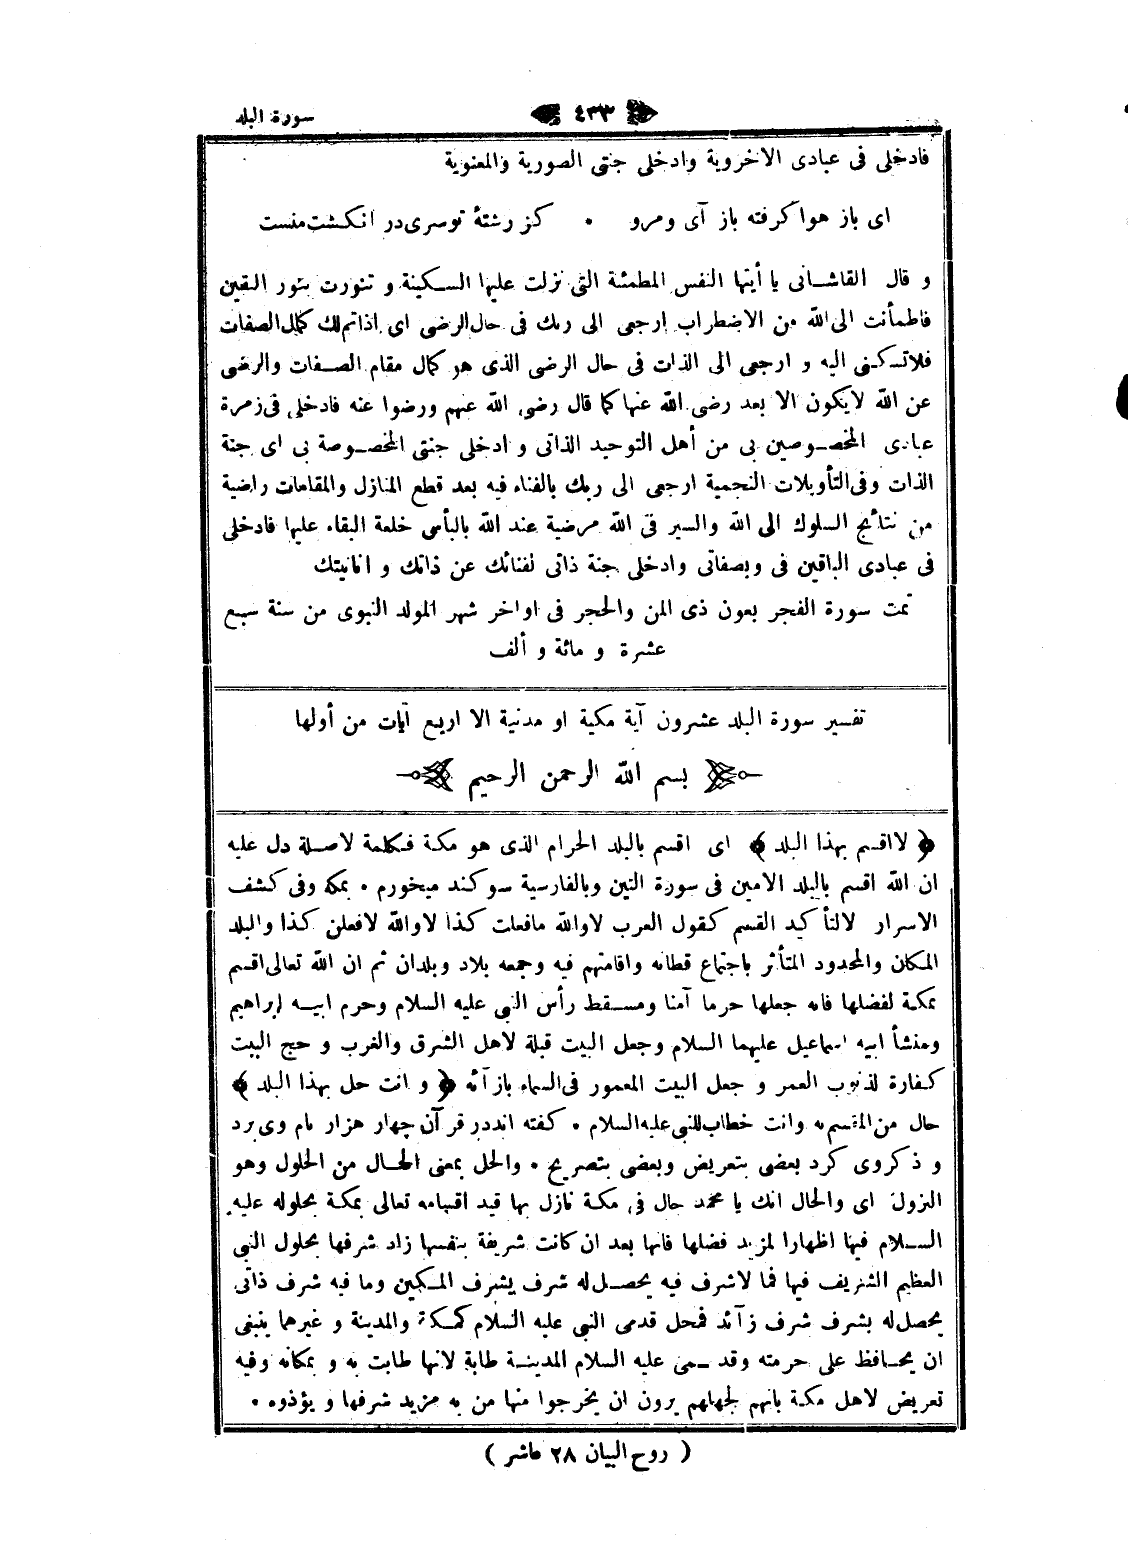 سورة البلد
٤٣٣
فادخلى فى عبادى الاخروية وادخلى جنتى الصورية والمعنوية
اى باز هوا كرفته باز آى ومرو • كز رشتۀ توسرى در انكشت منست
و قال القاشانى يا أيتها النفس المطمئنة التى نزلت عليها السكينة و تنورت بنور اليقين
فاطمأنت الى الله من الاضطراب ارجعى الى ربك فى حال الرضى اى اذاتم لك كمال الصفات
فلاتسكنى اليه و ارجعى الى الذات فى حال الرضى الذى هو كمال مقام الصفات والرضى
عن الله لايكون الا بعد رضى الله عنها كما قال رضى الله عنهم ورضوا عنه فادخلى فى زمرة
عبادى المخصوصين بى من أهل التوحيد الذاتى و ادخلى جنتى المخصوصة بى اى جنة
الذات وفى التأويلات النجمية ارجعى الى ربك بالفناء فيه بعد قطع المنازل والمقامات راضية
من نتائج السلوك الى الله والسير فى الله مرضية عند الله بالبأس خلعة البقاء عليها فادخلى
فى عبادى الباقين فى وبصفاتى وادخلى جنة ذاتى لفنائك عن ذاتك و انانيتك
تمت سورة الفجر بعون ذى المن والحجر فى اواخر شهر المولد النبوى من سنة سبع
عشرة و مائة و ألف
تفسير سورة البلد عشرون آية مكية او مدنية الا اربع آيات من أولها
بسم الله الرحمن الرحيم
﴿ لااقسم بهذا البلد ﴾ اى اقسم بالبلد الحرام الذى هو مكة فكلمة لاصلة دل عليه
ان الله اقسم بالبلد الامين فى سورة التين وبالفارسية سوكند ميخورم • بمكه وفى كشف
الاسرار لالتأكيد القسم كقول العرب لاوالله مافعلت كذا لاوالله لافعلن كذا والبلد
المكان والمحدود المتأثر باجتماع قطانه واقامتهم فيه وجمعه بلاد وبلدان ثم ان الله تعالى اقسم
بمكة لفضلها فانه جعلها حرما آمنا ومسقط رأس النبى عليه السلام وحرم ابيه ابراهيم
ومنشأ ابيه اسماعيل عليهما السلام وجعل البيت قبلة لاهل الشرق والغرب و حج البيت
كفارة لذنوب العمر و جعل البيت المعمور فى السماء بازآئه ﴿ و انت حل بهذا البلد ﴾
حال من المقسم به وانت خطاب للنبى عليه السلام • كفته اند در قرآن چهار هزار نام وى برد
و ذكر وى كرد بعضى بتعريض وبعضى بتصريح • والحل بمعنى الحال من الحلول وهو
النزول اى والحال انك يا محمد حال فى مكة نازل بها قيد اقسامه تعالى بمكة بحلوله عليه
السلام فيها اظهارا لمزيد فضلها فانها بعد ان كانت شريفة بنفسها زاد شرفها بحلول النبى
العظيم الشريف فيها فما لاشرف فيه يحصل له شرف بشرف المكين وما فيه شرف ذاتى
يحصل له بشرف شرف زآئد فمحل قدمى النبى عليه السلام كمكة والمدينة و غيرهما ينبغى
ان يحافظ على حرمته وقد سمى عليه السلام المدينة طابة لانها طابت به و بمكانه وفيه
تعريض لاهل مكة بانهم لجهلهم يرون ان يخرجوا منها من به مزيد شرفها و يؤذوه •
( روح البيان ٢٨ عاشر )